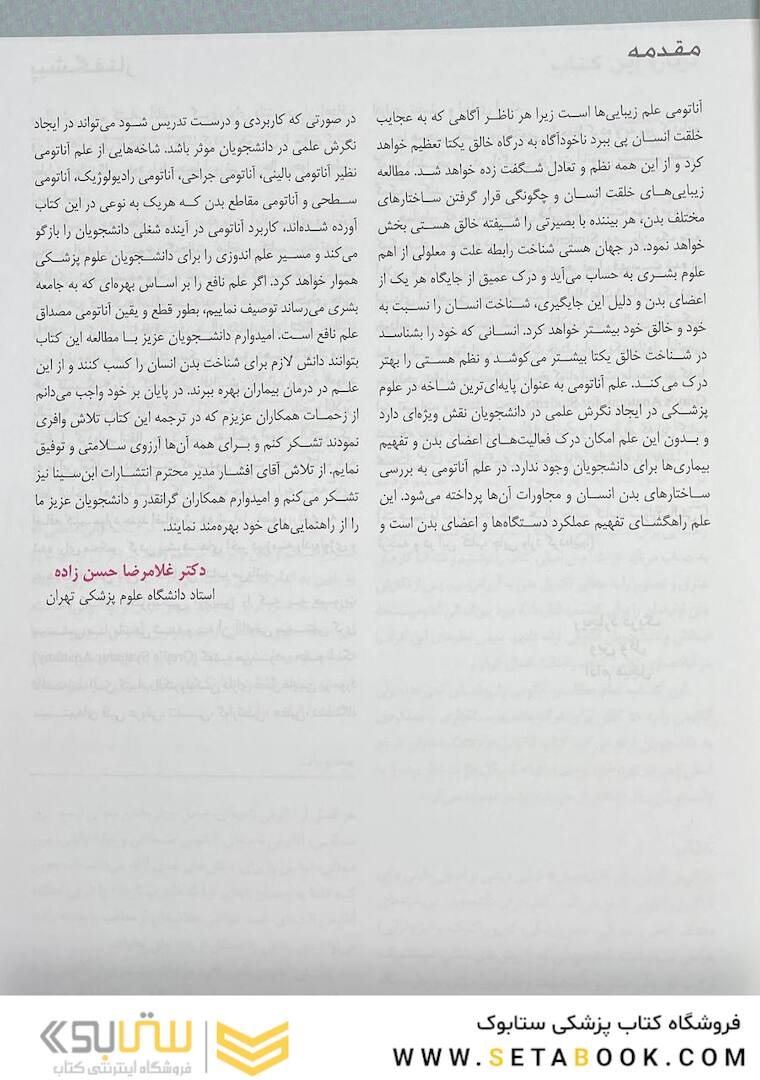 مقدمه
آناتومی علم زیبایی‌ها است زیرا هر ناظر آگاهی که به عجایب
خلقت انسان پی ببرد ناخودآگاه به درگاه خالق یکتا تعظیم خواهد
کرد و از این همه نظم و تعادل شگفت زده خواهد شد. مطالعه
زیبایی‌های خلقت انسان و چگونگی قرار گرفتن ساختارهای
مختلف بدن، هر بیننده با بصیرتی را شیفته خالق هستی بخش
خواهد نمود. در جهان هستی شناخت رابطه علت و معلولی از اهم
علوم بشری به حساب می‌آید و درک عمیق از جایگاه هر یک از
اعضای بدن و دلیل این جایگیری، شناخت انسان را نسبت به
خود و خالق خود بیشتر خواهد کرد. انسانی که خود را بشناسد
در شناخت خالق یکتا بیشتر می‌کوشد و نظم هستی را بهتر
درک می‌کند. علم آناتومی به عنوان پایه‌ای‌ترین شاخه در علوم
پزشکی در ایجاد نگرش علمی در دانشجویان نقش ویژه‌ای دارد
و بدون این علم امکان درک فعالیت‌های اعضای بدن و تفهیم
بیماری‌ها برای دانشجویان وجود ندارد. در علم آناتومی به بررسی
ساختارهای بدن انسان و مجاورات آن‌ها پرداخته می‌شود. این
علم راهگشای تفهیم عملکرد دستگاه‌ها و اعضای بدن است و
در صورتی که کاربردی و درست تدریس شود می‌تواند در ایجاد
نگرش علمی در دانشجویان موثر باشد. شاخه‌هایی از علم آناتومی
نظیر آناتومی بالینی، آناتومی جراحی، آناتومی رادیولوژیک، آناتومی
سطحی و آناتومی مقاطع بدن که هریک به نوعی در این کتاب
آورده شده‌اند، کاربرد آناتومی در آینده شغلی دانشجویان را بازگو
می‌کند و مسیر علم اندوزی را برای دانشجویان علوم پزشکی
هموار خواهد کرد. اگر علم نافع را بر اساس بهره‌ای که به جامعه
بشری می‌رساند توصیف نماییم، بطور قطع و یقین آناتومی مصداق
علم نافع است. امیدوارم دانشجویان عزیز با مطالعه این کتاب
بتوانند دانش لازم برای شناخت بدن انسان را کسب کنند و از این
علم در درمان بیماران بهره ببرند. در پایان بر خود واجب می‌دانم
از زحمات همکاران عزیزم که در ترجمه این کتاب تلاش وافری
نمودند تشکر کنم و برای همه آن‌ها آرزوی سلامتی و توفیق
نمایم. از تلاش آقای افشار مدیر محترم انتشارات ابن‌سینا نیز
تشکر می‌کنم و امیدوارم همکاران گرانقدر و دانشجویان عزیز ما
را از راهنمایی‌های خود بهره‌مند نمایند.
دکتر غلامرضا حسن زاده
استاد دانشگاه علوم پزشکی تهران
فروشگاه کتاب پزشکی ستابوک
WWW.SETABOOK.COM
ستابوک
فروشگاه اینترنتی کتاب